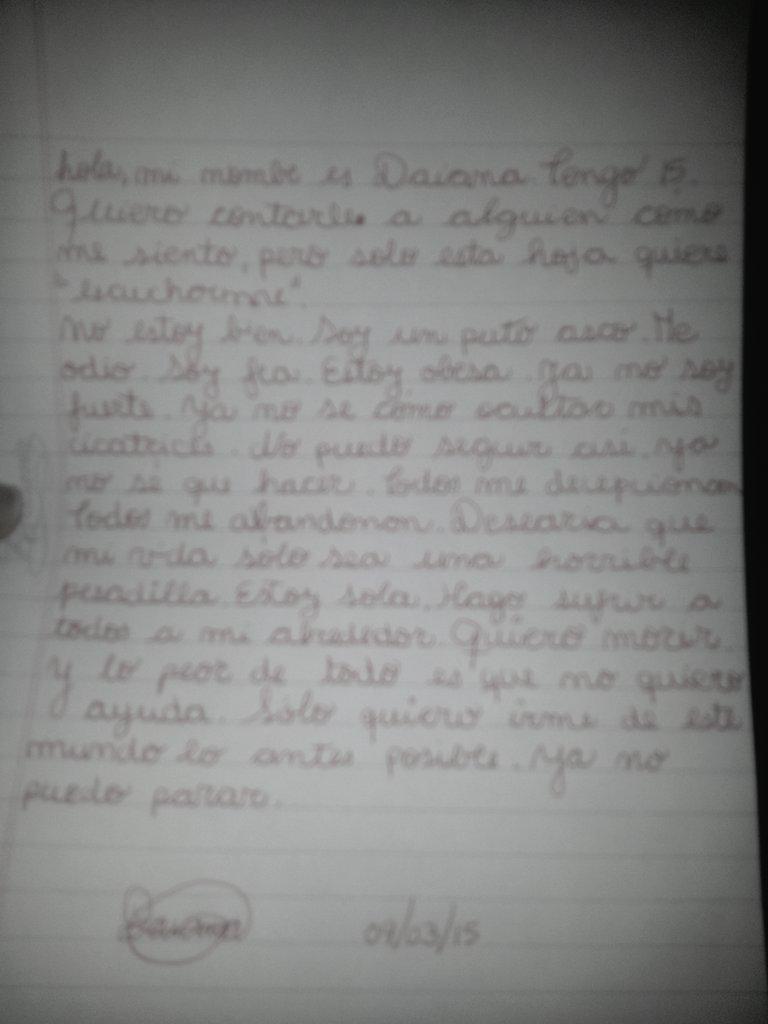 hola, mi nombe es Daiana. Tengo 15.
Quiero contarle a alguien como
me siento, pero solo esta hoja quiere
"escucharme".
No estoy bien. Soy un puto asco. Me
odio. Soy fea. Estoy obesa. Ya no soy
fuerte. Ya no se como ocultar mis
cicatrices. No puedo seguir asi. Ya
no sé que hacer. Todos me decepcionan
Todos me abandonan. Desearia que
mi vida solo sea una horrible
pesadilla. Estoy sola. Hago sufrir a
todos a mi alrededor. Quiero morir.
y lo peor de todo es que no quiero
ayuda. Solo quiero irme de este
mundo lo antes posible. Ya no
puedo parar.
Daiana 09/03/15